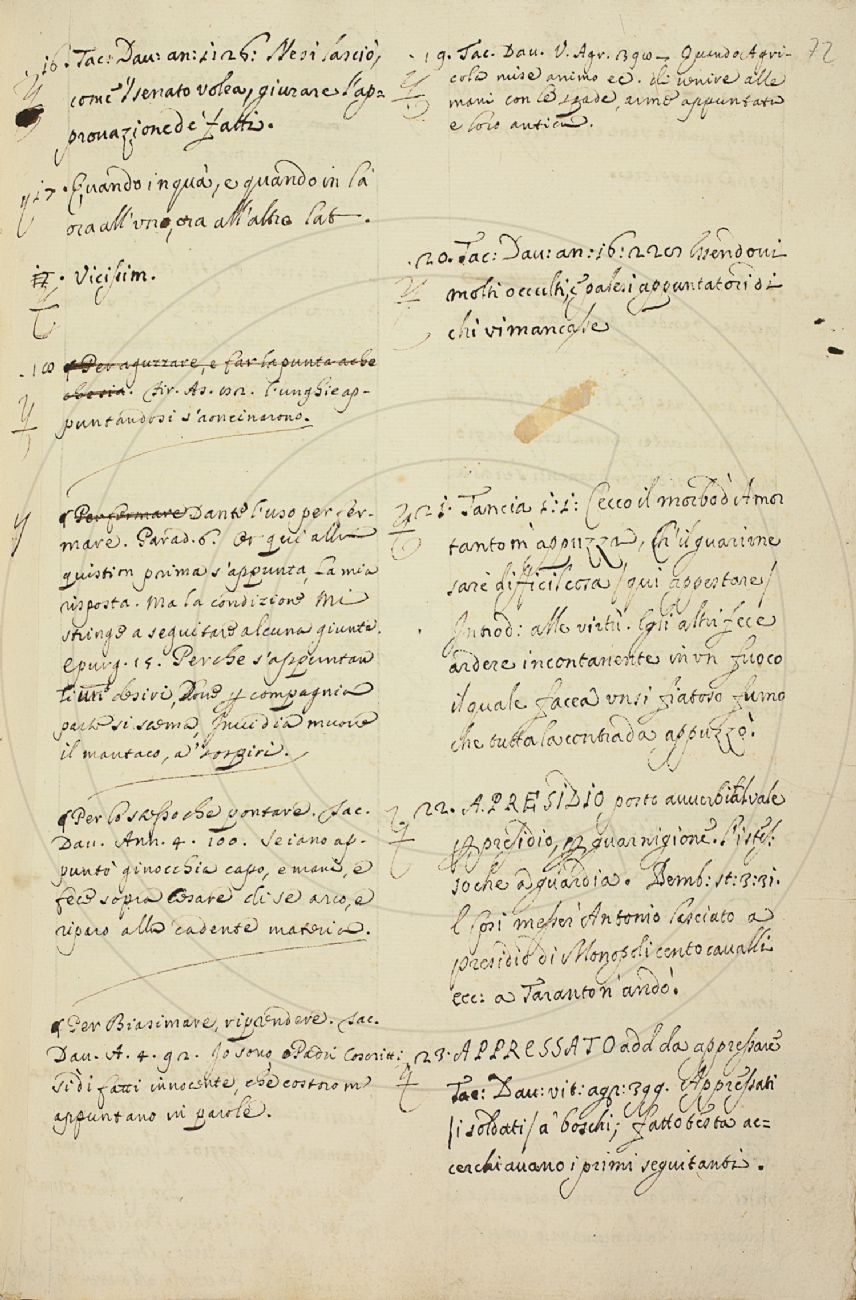 72
16. Tac: Dau: an: 1: 26: Ne si lasciò,
come 'l senato volea, giurare l'ap=
prouazione de' fatti.
17. Quando in quà, e quando in là
ora all'uno, ora all'altro lat .
17. Vicissim.
.18 ¶ Per aguzzare, e far la punta a che
che sia. Fir. As. l'unghie ap-
puntandosi s'aoncinarono.
¶ Per fermare Dante l'uso per fer-
mare. Parad. 6. Or qui alla
quistion prima s'appunta, La mia
risposta. Ma la condizione Mi
stringe a seguitare alcuna giunta.
E purg. 15. Perche s'appuntan
li uri desiri, Doue p compagnia
parte si scema, Inuidia muoue
il mantaco, a' sospiri.
¶ Per lo stesso che pontare. Tac.
Dau. Ann. 4. 100. Seiano ap-
puntò ginocchia capo, e mani, e
fece sopra Cesare di se arco, e
riparo alla cadente materia.
¶ Per Biasimare, riprendere. Tac.
Dau. A. 4. 92. Io sono o Padri Coscritti
sì di fatti innocente, che costoro m'
appuntano in parole.
.19. Tac. Dau. V. Agr. Quando Agri-
cola mise animo ec. di uenire alle
mani con le spade, arme appuntata
e loro antica.
.20. Tac: Dau: an: 16: 220 Essendoui
molti occulti, e palesi appuntatori di
chi vi mancasse
21. Tancia 1: 1: Cecco il morbo d'Amor
tanto m'appuzza, Ch'il guarirne
sare difficil cosa / qui appestare /
Introd: alle virtù. Egli altri fece
ardere incontanente in vn fuoco
il quale facea vn si fiatoso fumo
che tutta la contrada appuzzò.
22. A PRESIDIO posto auuerbialm vale
p presidio, p guarnigione. l'istes=
so che a guardia. Bemb: st: 3: 31.
E così messer Antonio lasciato a
presidio di Monopoli cento caualli
ecc: a Taranto n'andò.
23. APPRESSATO add da appressare
Tac: Dau: vit: agr: 399. Appressati
/i soldati/ a' boschi, fatto testa ac=
cerchiauano i primi seguitanti.